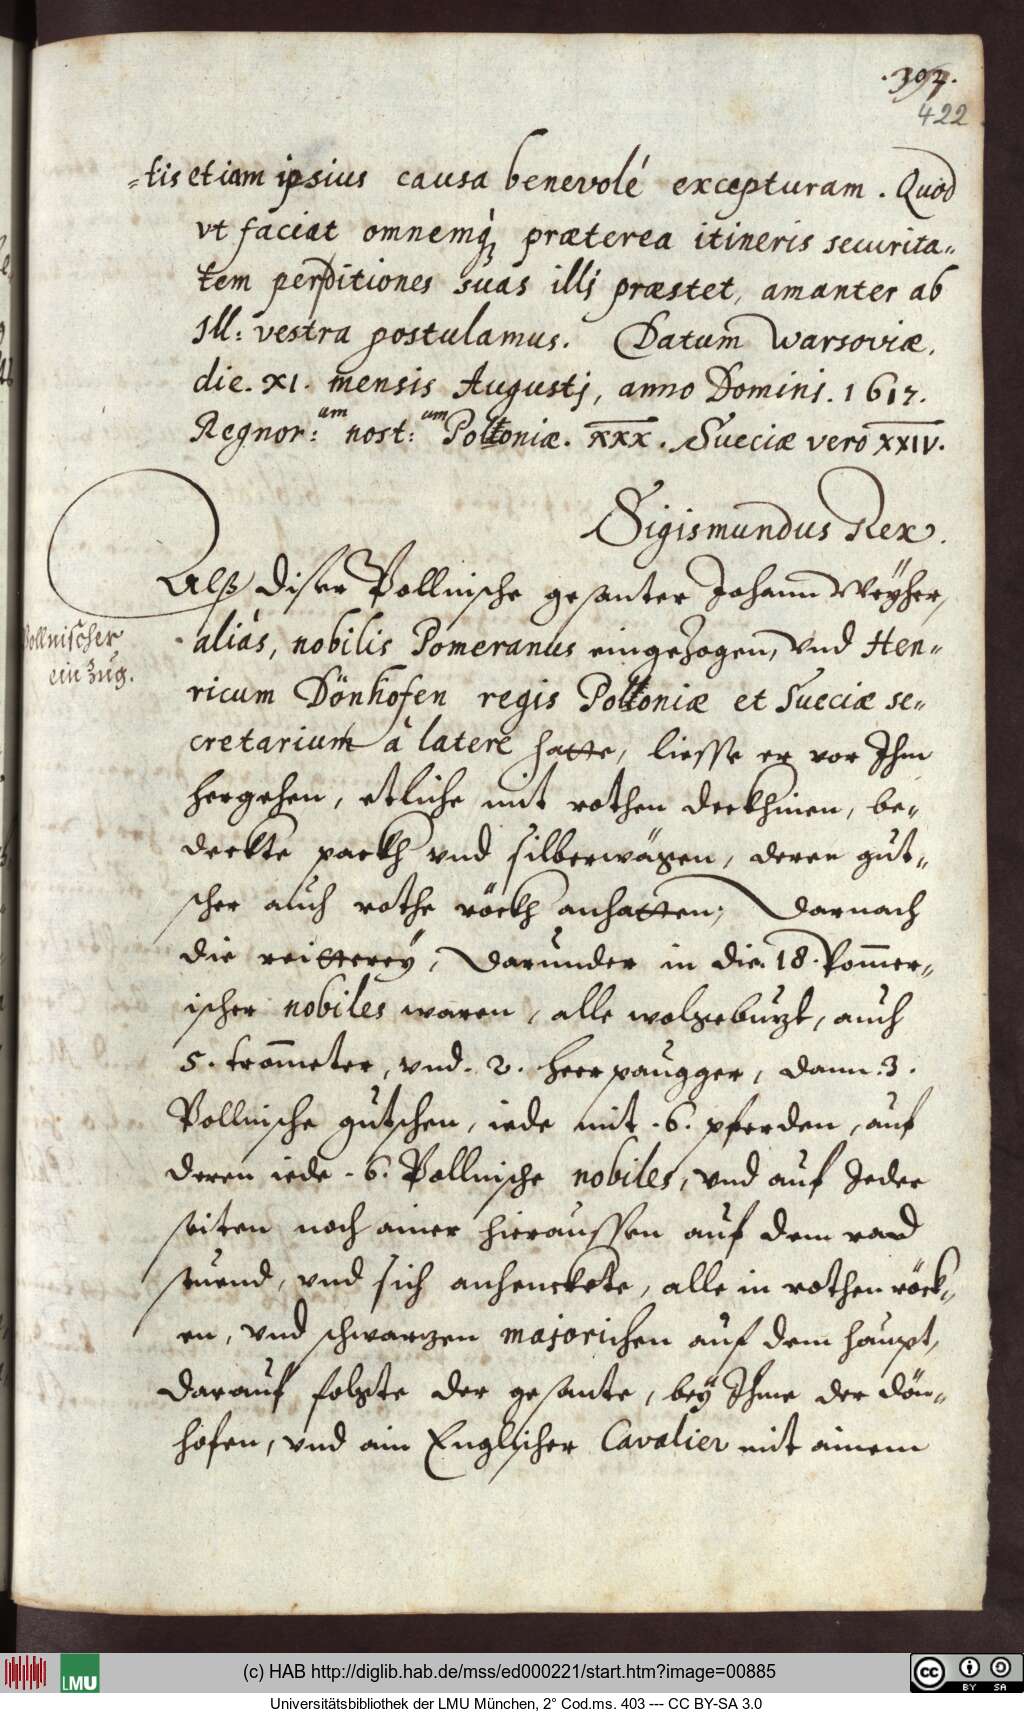 .397.
422
=tis etiam ipsius causa benevolé excepturam. Quod
vt faciat omnemq́ præterea itineris securita=
tem per ditiones suas illi præstet, amanter ab
Ill: vestra postulamus. Datum Warsoviæ,
die. XI. mensis Augustj, anno Dominj. 1617.
Regnor:um nost:um Poloniæ. XXX. Sueciæ vero XXIV.
Sigismundus Rex.
Alß diser Pollnische gesanter Johann Weyher,
Pollnischer
einzug.
aliàs, nobilis Pomeranus eingezogen, vnd Hen=
ricum Dönhofen regis Poloniæ et Sueciæ se=
cretarium à latere hatte, liesse er vor Ihm
hergehen, etliche mit rothen deckhinen, be=
deckte packh vnd silberwägen, deren gut=
scher auch rothe röckh anhatten, darnach
die reitterey, darunder in die .18. Pom̄er=
ischer nobiles waren, alle wolgebuzt, auch
5. trom̄eter, vnd .2. heerpaugger, dann .3.
Pollnische gutschen, iede mit .6. pferden, auf
deren iede .6. Pollnische nobiles, vnd auf Jeder
seiten noch ainer hieraussen auf dem rad
stuend, vnd sich anhenckete, alle in rothen röck=
en, vnd schwarzen majorichen auf dem haupt,
darauf folgte der gesante, bey Ihme der Dön=
hofen, vnd ain Englischer Cavalier mit ainem
(c) HAB http://diglib.hab.de/mss/ed000221/start.htm?image=00885
LMU
cc BY SA
Universitätsbibliothek der LMU München, 2° Cod.ms. 403 --- CC BY-SA 3.0